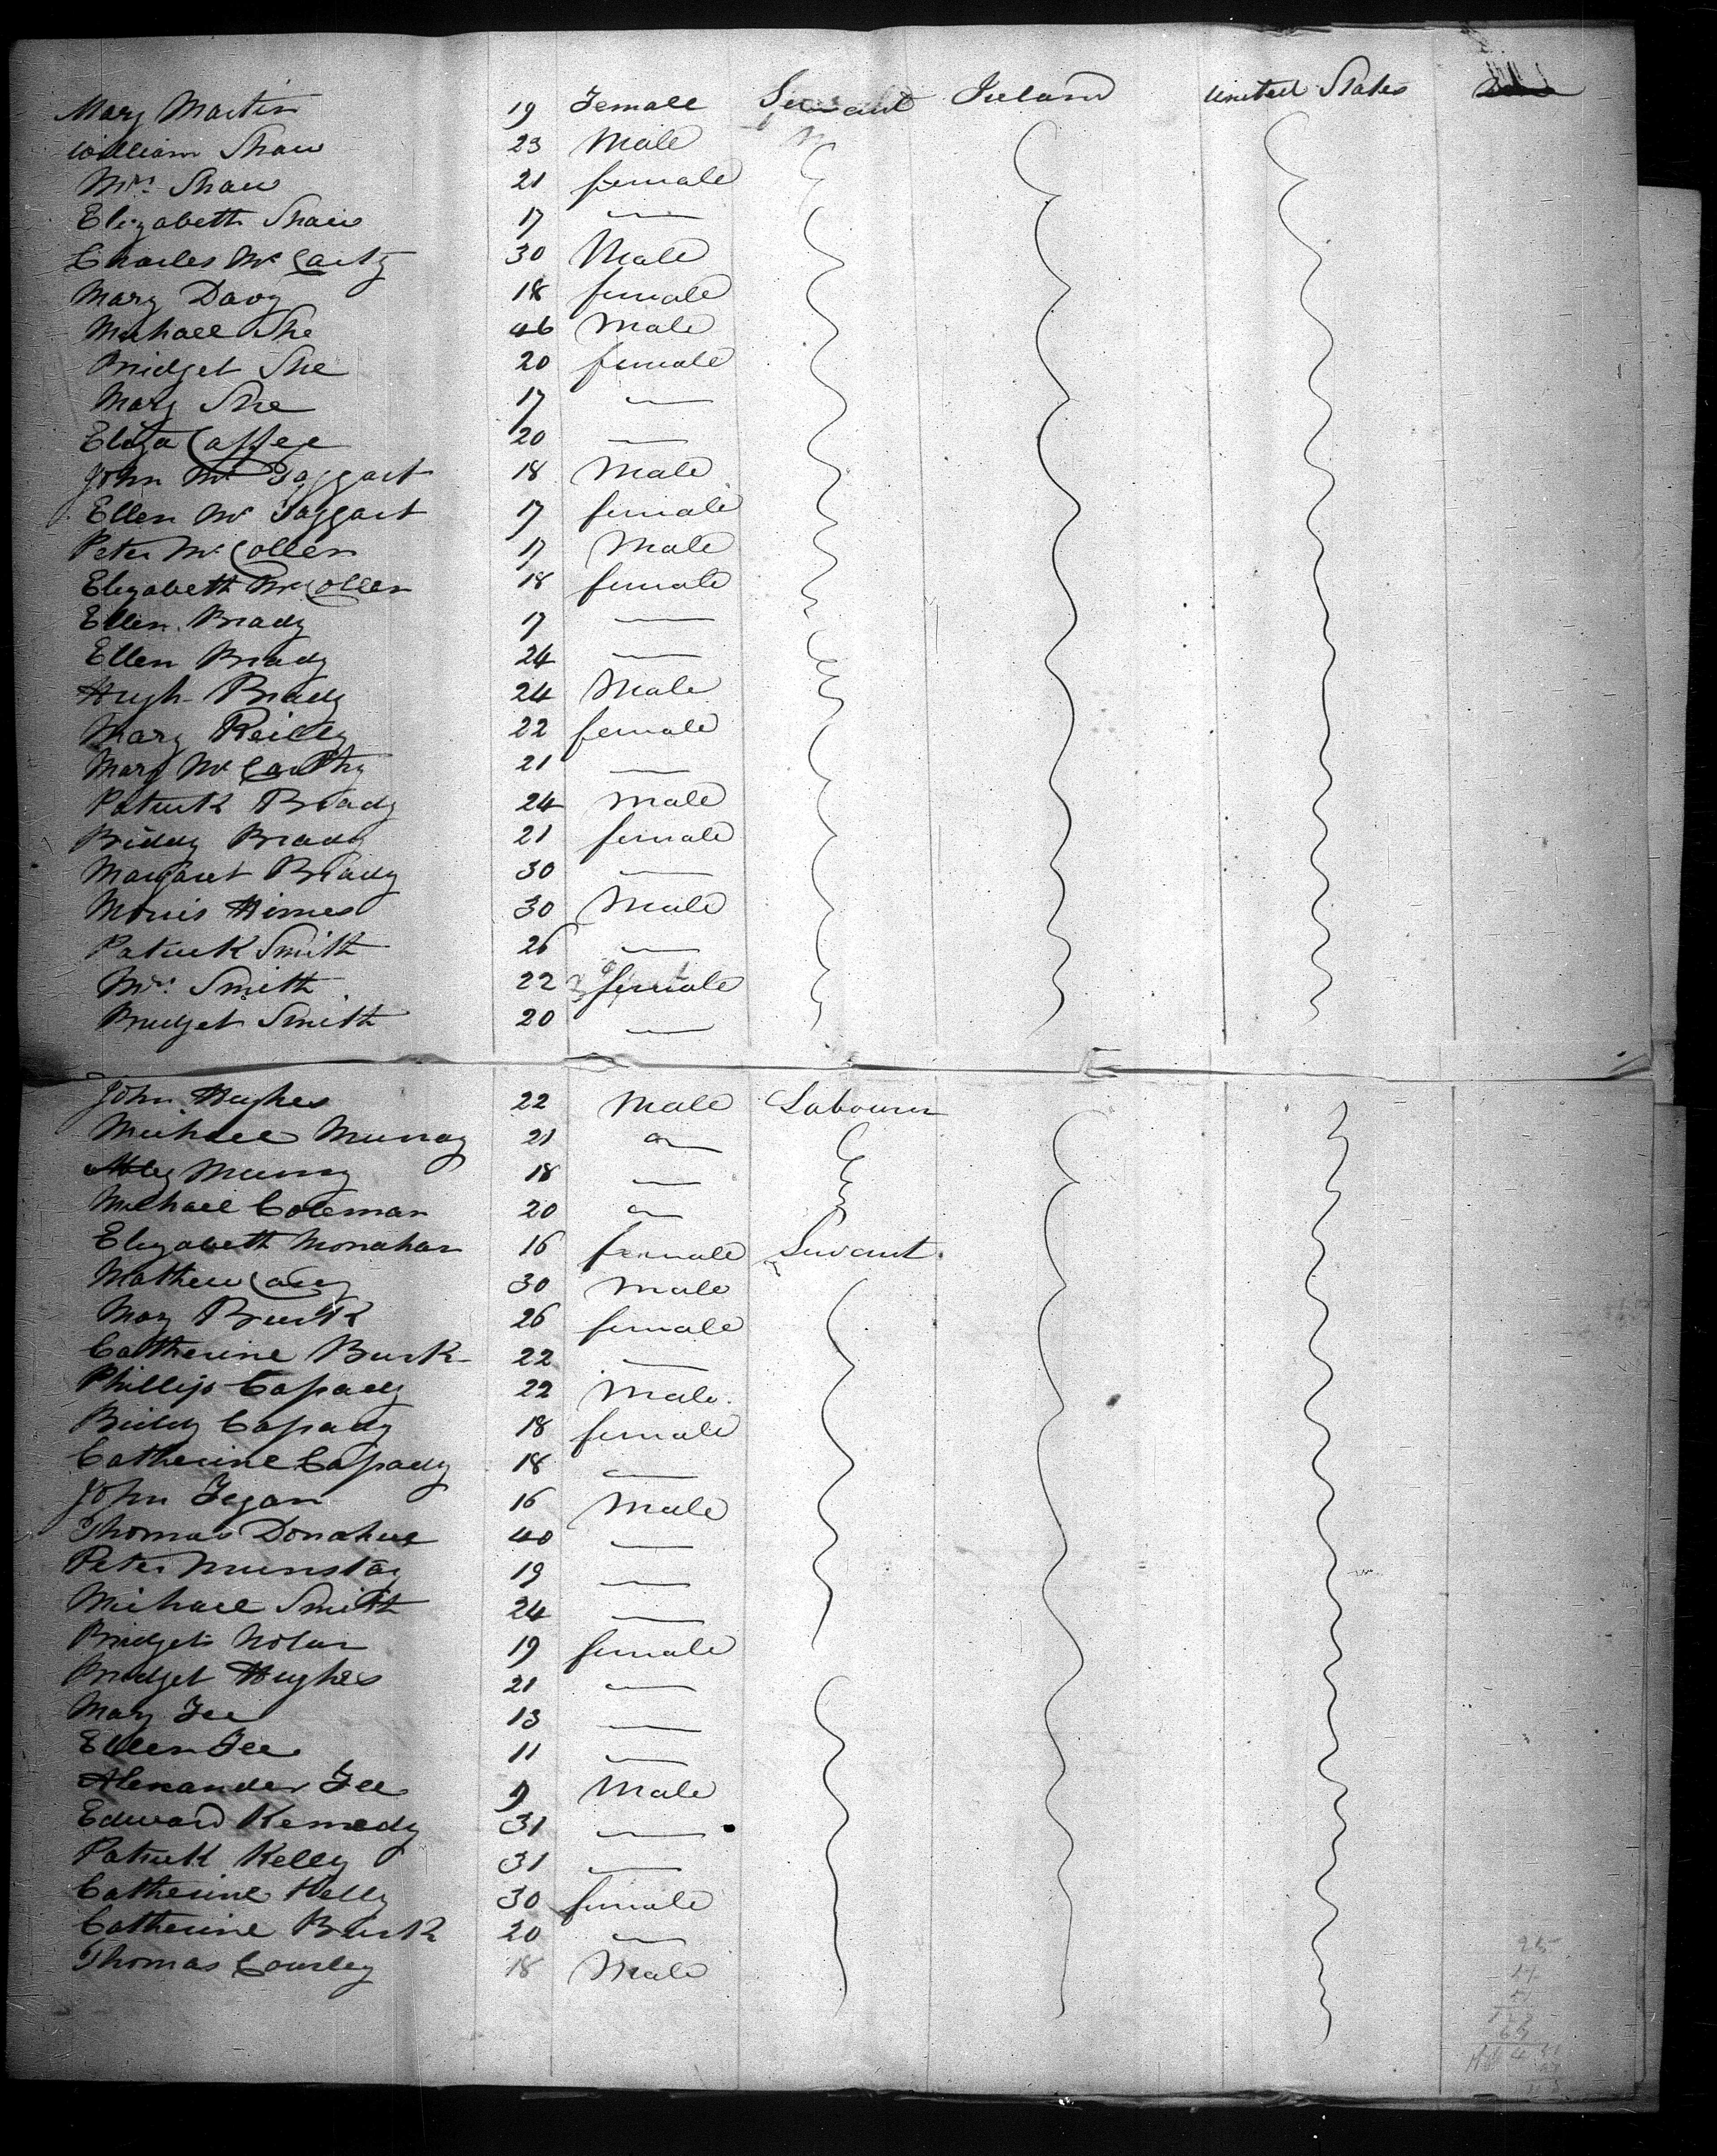 Mary Martin 19 Female Servant Ireland United States
William Shaw 23 Male
Mrs. Shaw 21 female
Elizabeth Shaw 17 —
Charles Mc Carty 30 Male
Mary Davy 18 female
Michael She 46 Male
Bridget She 20 female
Mary She 17 —
Eliza Caffee 20 —
John Mc Taggart 18 Male
Ellen Mc Taggart 17 female
Peter Mc Collen 17 Male
Elizabeth Mc Collen 18 female
Ellen Brady 17 —
Ellen Brady 24 —
Hugh Brady 24 Male
Mary Reilly 22 female
Mary Mc Carthy 21 —
Patrick Brady 24 Male
Biddy Brady 21 female
Margaret Brady 30 —
Morris Himes 30 Male
Patrick Smith 26 —
Mrs. Smith 22 female
Bridget Smith 20 —
John Hughes 22 Male Labourer
Michael Murray 21 —
Murray 18 —
Michael Coleman 20 —
Elizabeth Monahan 16 female Servant
Mathew Casey 30 Male
Mary Burk 26 female
Catherine Burk 22 —
Phillip Cassady 22 Male
Biddy Cassady 18 female
Catherine Cassady 18 —
John Fegan 16 Male
Thomas Donahue 40 —
Peter Munstay 19 —
Michael Smith 24 —
Bridget Nolan 19 female
Bridget Hughes 21 —
Mary Fee 13 —
Ellen Fee 11 —
Alexander Fee 9 Male
Edward Kennedy 31 —
Patrick Kelly 31 —
Catherine Kelly 30 female
Catherine Burk 20 —
Thomas Coursey 18 Male